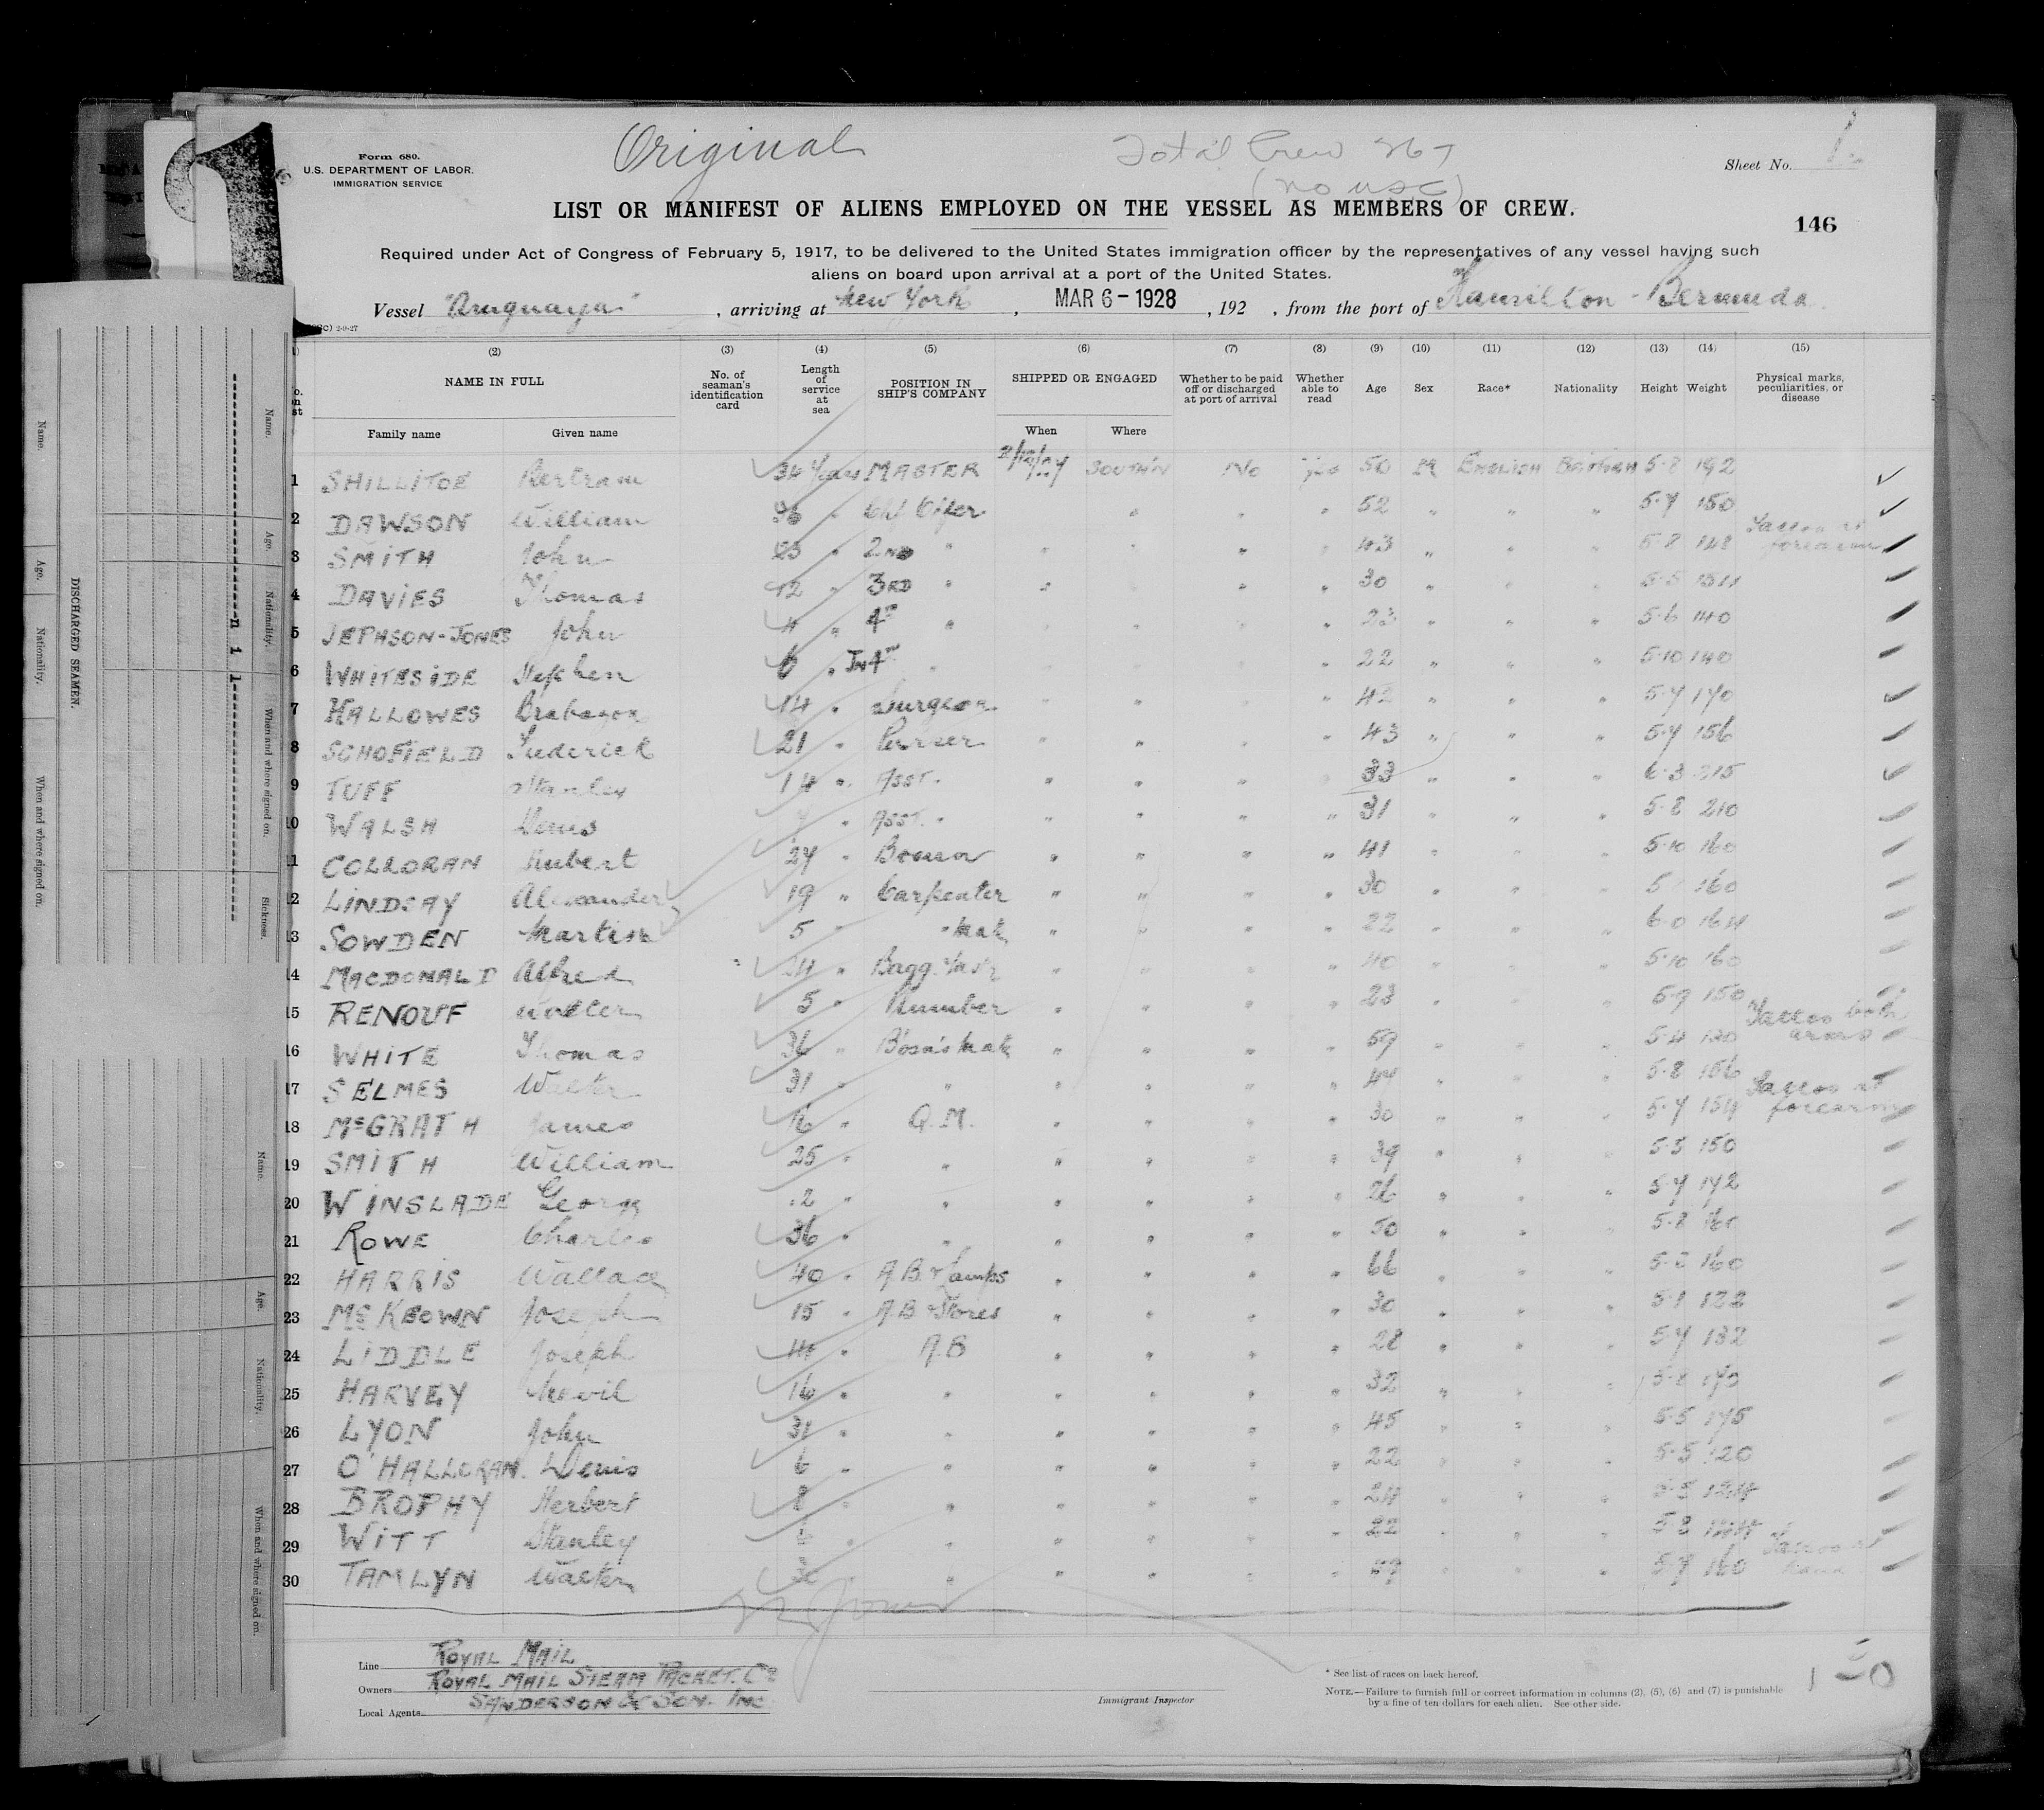 Original
Total Crew 367
(no USC)
Form 680.
U.S. DEPARTMENT OF LABOR.
IMMIGRATION SERVICE
Sheet No. 1
LIST OR MANIFEST OF ALIENS EMPLOYED ON THE VESSEL AS MEMBERS OF CREW.
146
Required under Act of Congress of February 5, 1917, to be delivered to the United States immigration officer by the representatives of any vessel having such
aliens on board upon arrival at a port of the United States.
Vessel "Araguaya", arriving at New York, MAR 6 - 1928, 192 , from the port of Hamilton - Bermuda
(1) (2) (3) (4) (5) (6) (7) (8) (9) (10) (11) (12) (13) (14) (15)
NAME IN FULL No. of seaman's identification card Length of service at sea POSITION IN SHIP'S COMPANY SHIPPED OR ENGAGED Whether to be paid off or discharged at port of arrival Whether able to read Age Sex Race* Nationality Height Weight Physical marks, peculiarities, or disease
Family name Given name When Where
1 SHILLITOE Bertram 34 Years MASTER SOUTH'N No yes 50 M ENGLISH BRITISH 5-8 192
2 DAWSON William 36 " Chf Offer " 52 " " " 5-7 150
3 SMITH John 23 " 2ND " " " " " 43 " " " 5-8 148 Tattoo rt forearm
4 DAVIES Thomas 12 " 3RD " " " " 30 " " " 5-5
5 JEPHSON-JONES John 4 " 4TH " " " " 23 " " " 5-6 140
6 WHITESIDE Stephen 6 " Jn 4TH " " 22 " " " 5-10 140
7 HALLOWES Brabazon 14 " Surgeon " " " " 42 " " " 5-7 170
8 SCHOFIELD Frederick 21 " Purser " " " " 43 " " " 5-7 156
9 TUFF Stanley 14 " ASST. " " " " " 33 " " " 6-3 215
10 WALSH Denis " ASST. " " " " " 31 " " " 5-8 210
11 COLLORAN Hubert 27 " Bosun " " " " 41 " " " 5-10 160
12 LINDSAY Alexander 19 " Carpenter " " " " 30 " " " 160
13 SOWDEN Martin 5 " " Mate " " " " 22 " " " 6-0 164
14 MACDONALD Alfred 24 " Bagg. Mastr " " " " 40 " " " 5-10 160
15 RENOUF Walter 5 " Plumber " " " " 23 " " " 5-9 150
16 WHITE Thomas 36 " Bosn's Mate " " " " 59 " " " 5-4 130 Tattoo both arms
17 SELMES Walter 31 " " " " " " 47 " " " 5-8 156
18 McGRATH James 16 " Q.M. " " " " 30 " " " 5-7 154 Tattoo rt forearm
19 SMITH William 25 " " " " " " 39 " " " 5-5 150
20 WINSLADE George 12 " " " " " " 26 " " " 5-7 172
21 ROWE Charles 36 " " " " " " 50 " " " 5-8 160
22 HARRIS Wallace 40 " A.B. Lamps " " " " 66 " " " 160
23 McKEOWN Joseph 15 " A.B Stores " " " " 30 " " " 122
24 LIDDLE Joseph " A.B " " " " 28 " " " 5-7 132
25 HARVEY Nevil 16 " " " " " " 32 " " " 5-8
26 LYON John 31 " " " " " " 45 " " " 5-5 175
27 O'HALLORAN. Denis 6 " " " " " " 22 " " " 5-5 120
28 BROPHY Herbert 8 " " " " " " 24 " " " 5-5
29 WITT Stanley 6 " " " " " " 22 " " " 5-8
30 TAMLYN Walter " " " " " " " " " 5-7 160 Tattoo rt hand
Line ROYAL MAIL
Owners ROYAL MAIL STEAM PACKET. Co
Local Agents SANDERSON & SON. INC
Immigrant Inspector
* See list of races on back hereof.
NOTE.—Failure to furnish full or correct information in columns (2), (5), (6) and (7) is punishable
by a fine of ten dollars for each alien. See other side.
DISCHARGED SEAMEN.
Name.
Age.
Nationality.
When and where signed on.
Name.
Age.
Nationality.
When and where signed on.
Sickness.
Name.
Age.
Nationality.
When and where signed on.